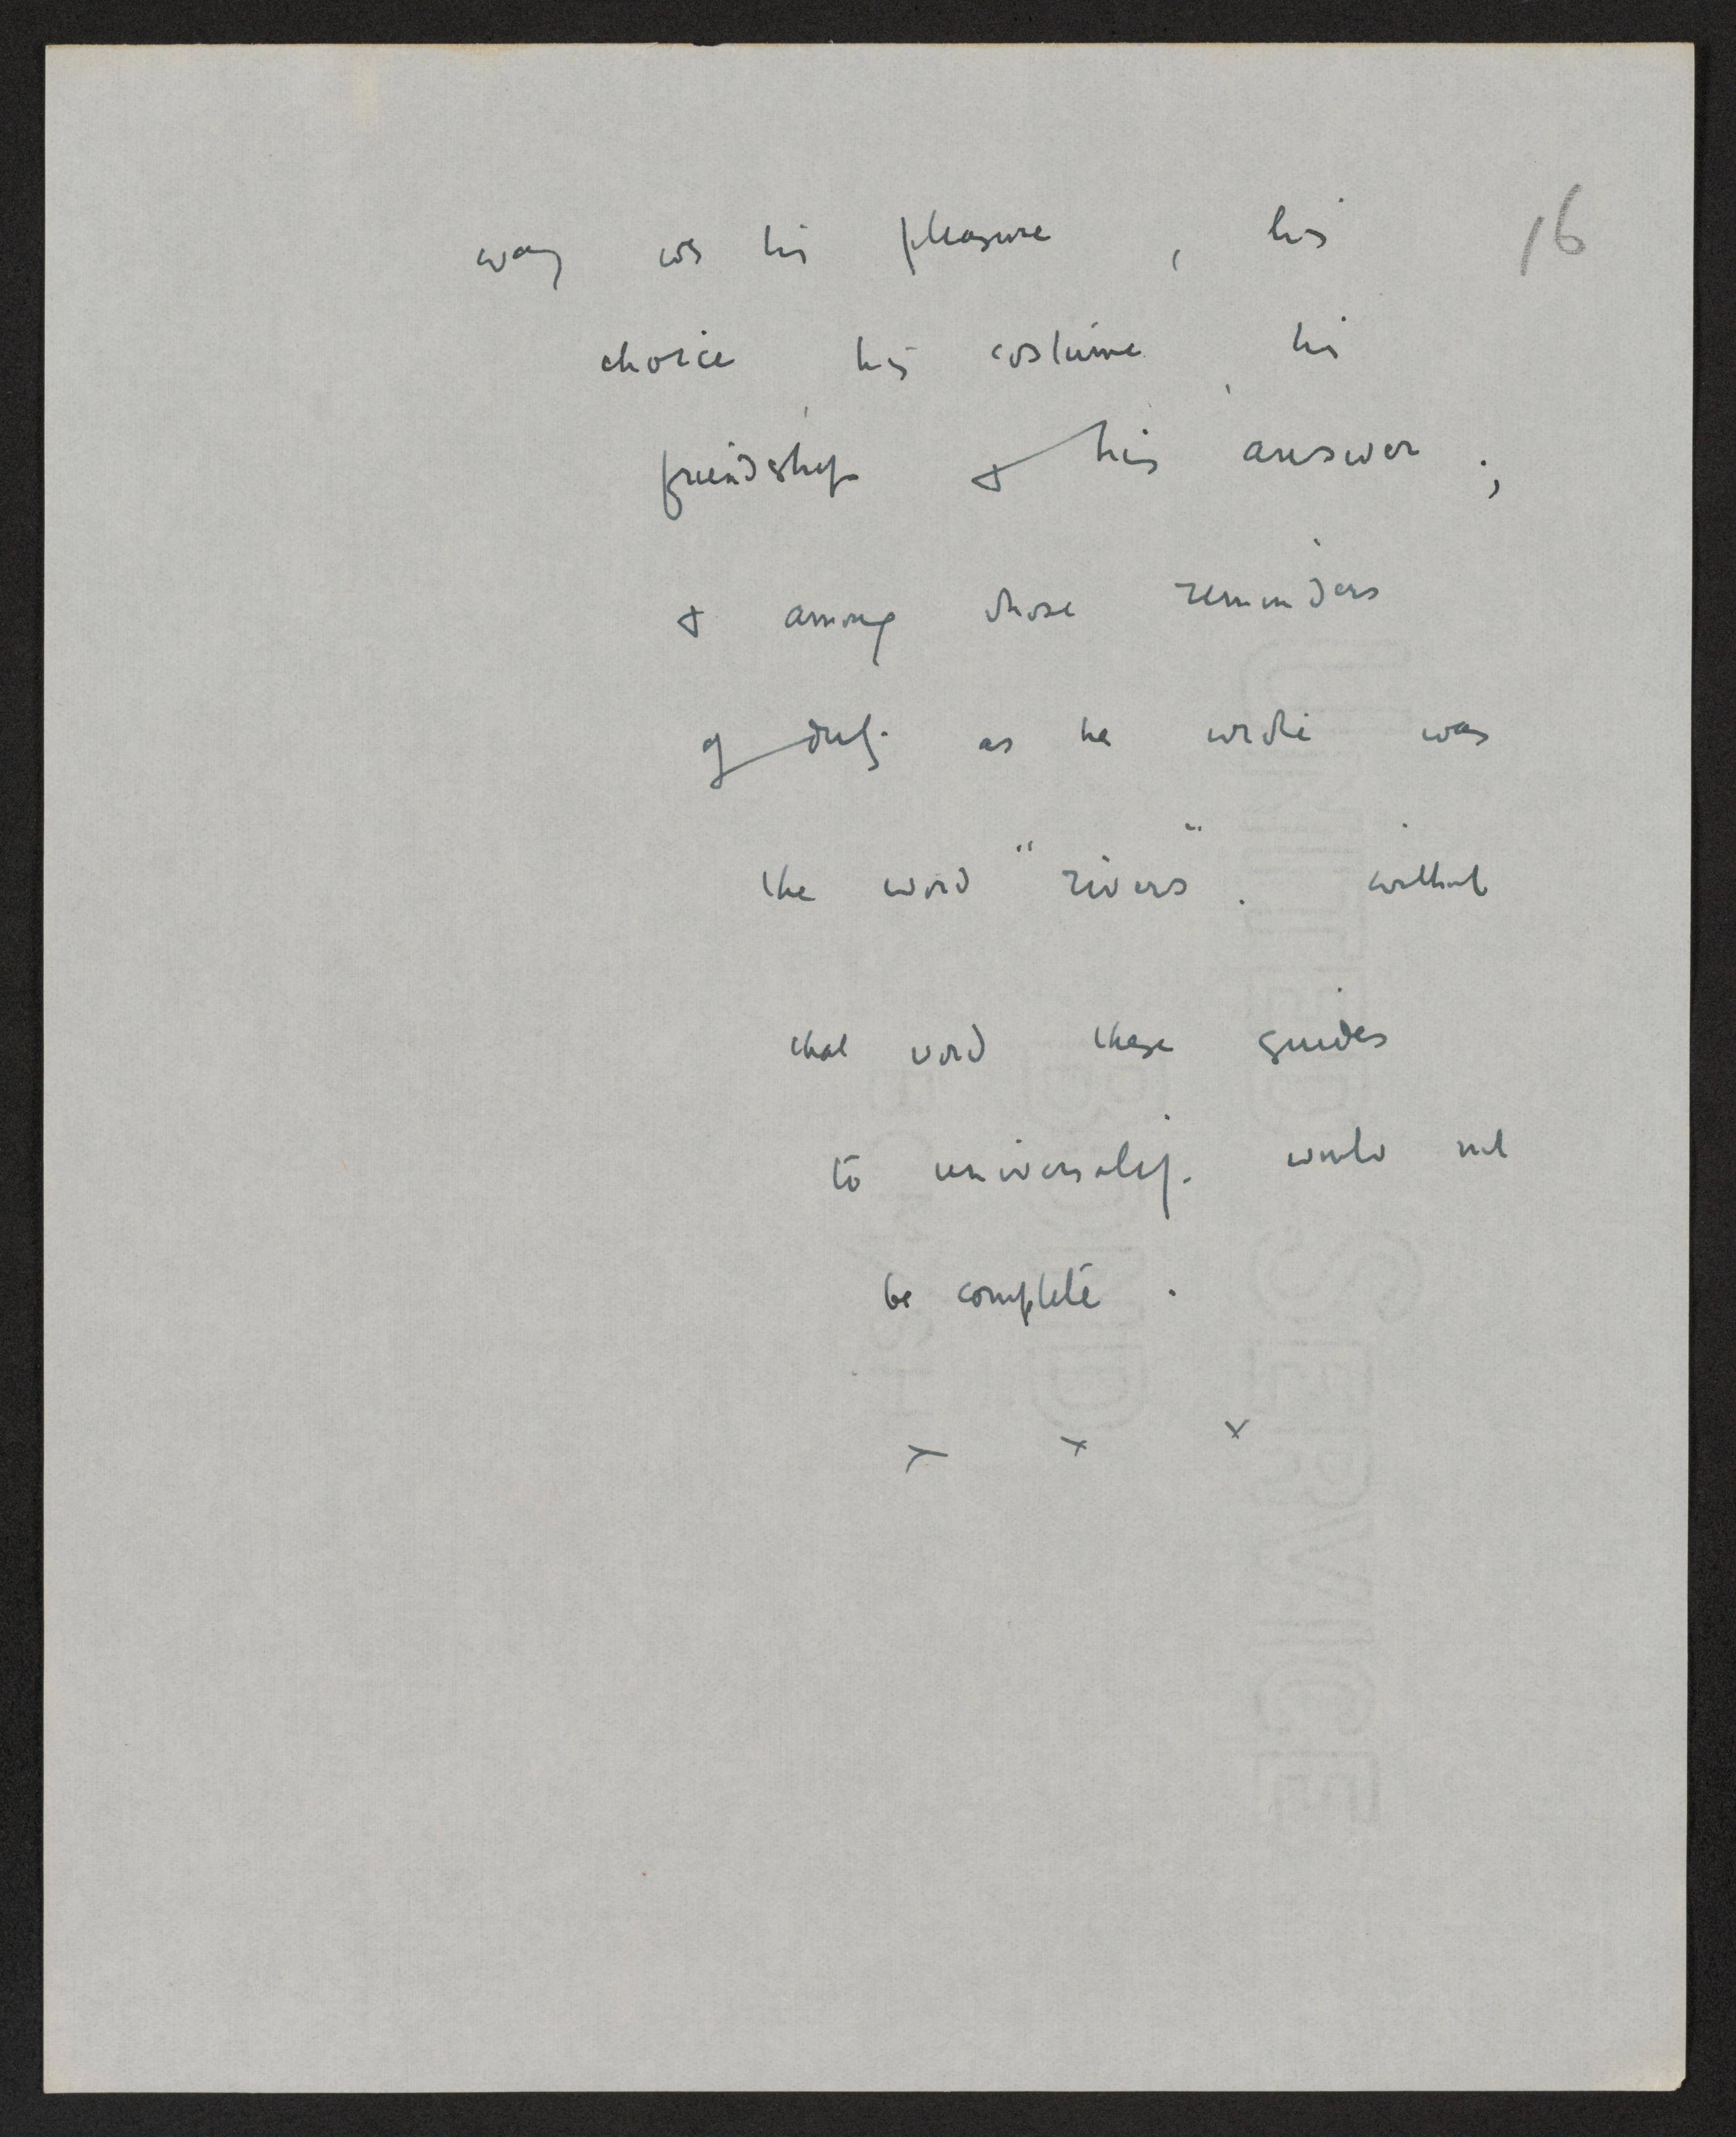 way was his pleasure, his 16
choice, his costume, his
friendship & his answer;
& among those reminders
of duty as he wrote was
the word "rivers". without
that word these guides
to universality would not
be complete.
x x x
UNITED SERVICE
BOND